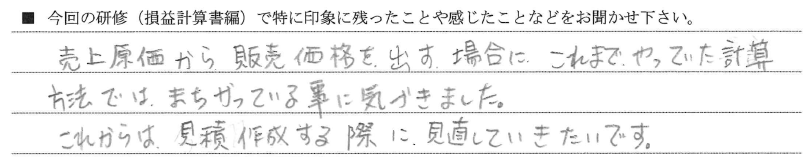 ■ 今回の研修（損益計算書編）で特に印象に残ったことや感じたことなどをお聞かせ下さい。
売上原価から販売価格を出す場合に これまでやっていた計算
方法では、まちがっている事に気がきました。
これからは、見積作成する際に、見直していきたいです。